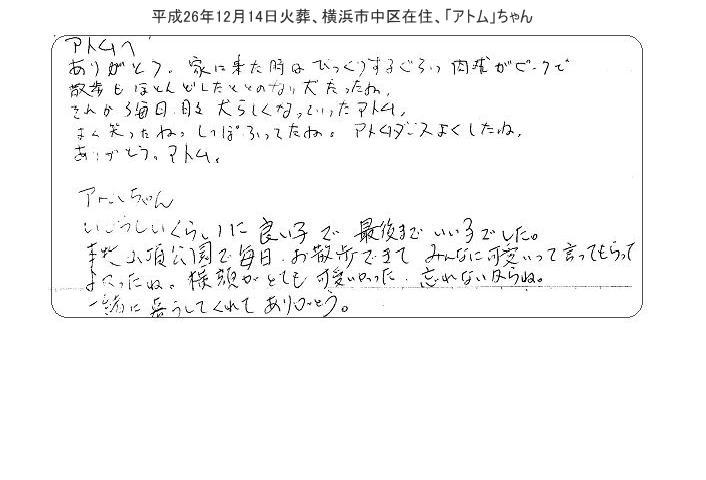 平成26年12月14日火葬、横浜市中区在住、「アトム」ちゃん
アトムへ
ありがとう。家に来た時はびっくりするぐらい肉球がピンクで
散歩もほとんどしたことのない犬だったね。
それから毎日日々犬らしくなっていったアトム。
よく笑ったね。しっぽふってたね。アトムダンスよくしたね。
ありがとう。アトム。
アトムちゃん
いじらしいくらいに良い子で最後までいい子でした。
山頂公園で毎日お散歩できてみんなに可愛いって言ってもらって
よかったね。様顔がとても可愛いかった。忘れないからね。
一緒に暮らしてくれてありがとう。